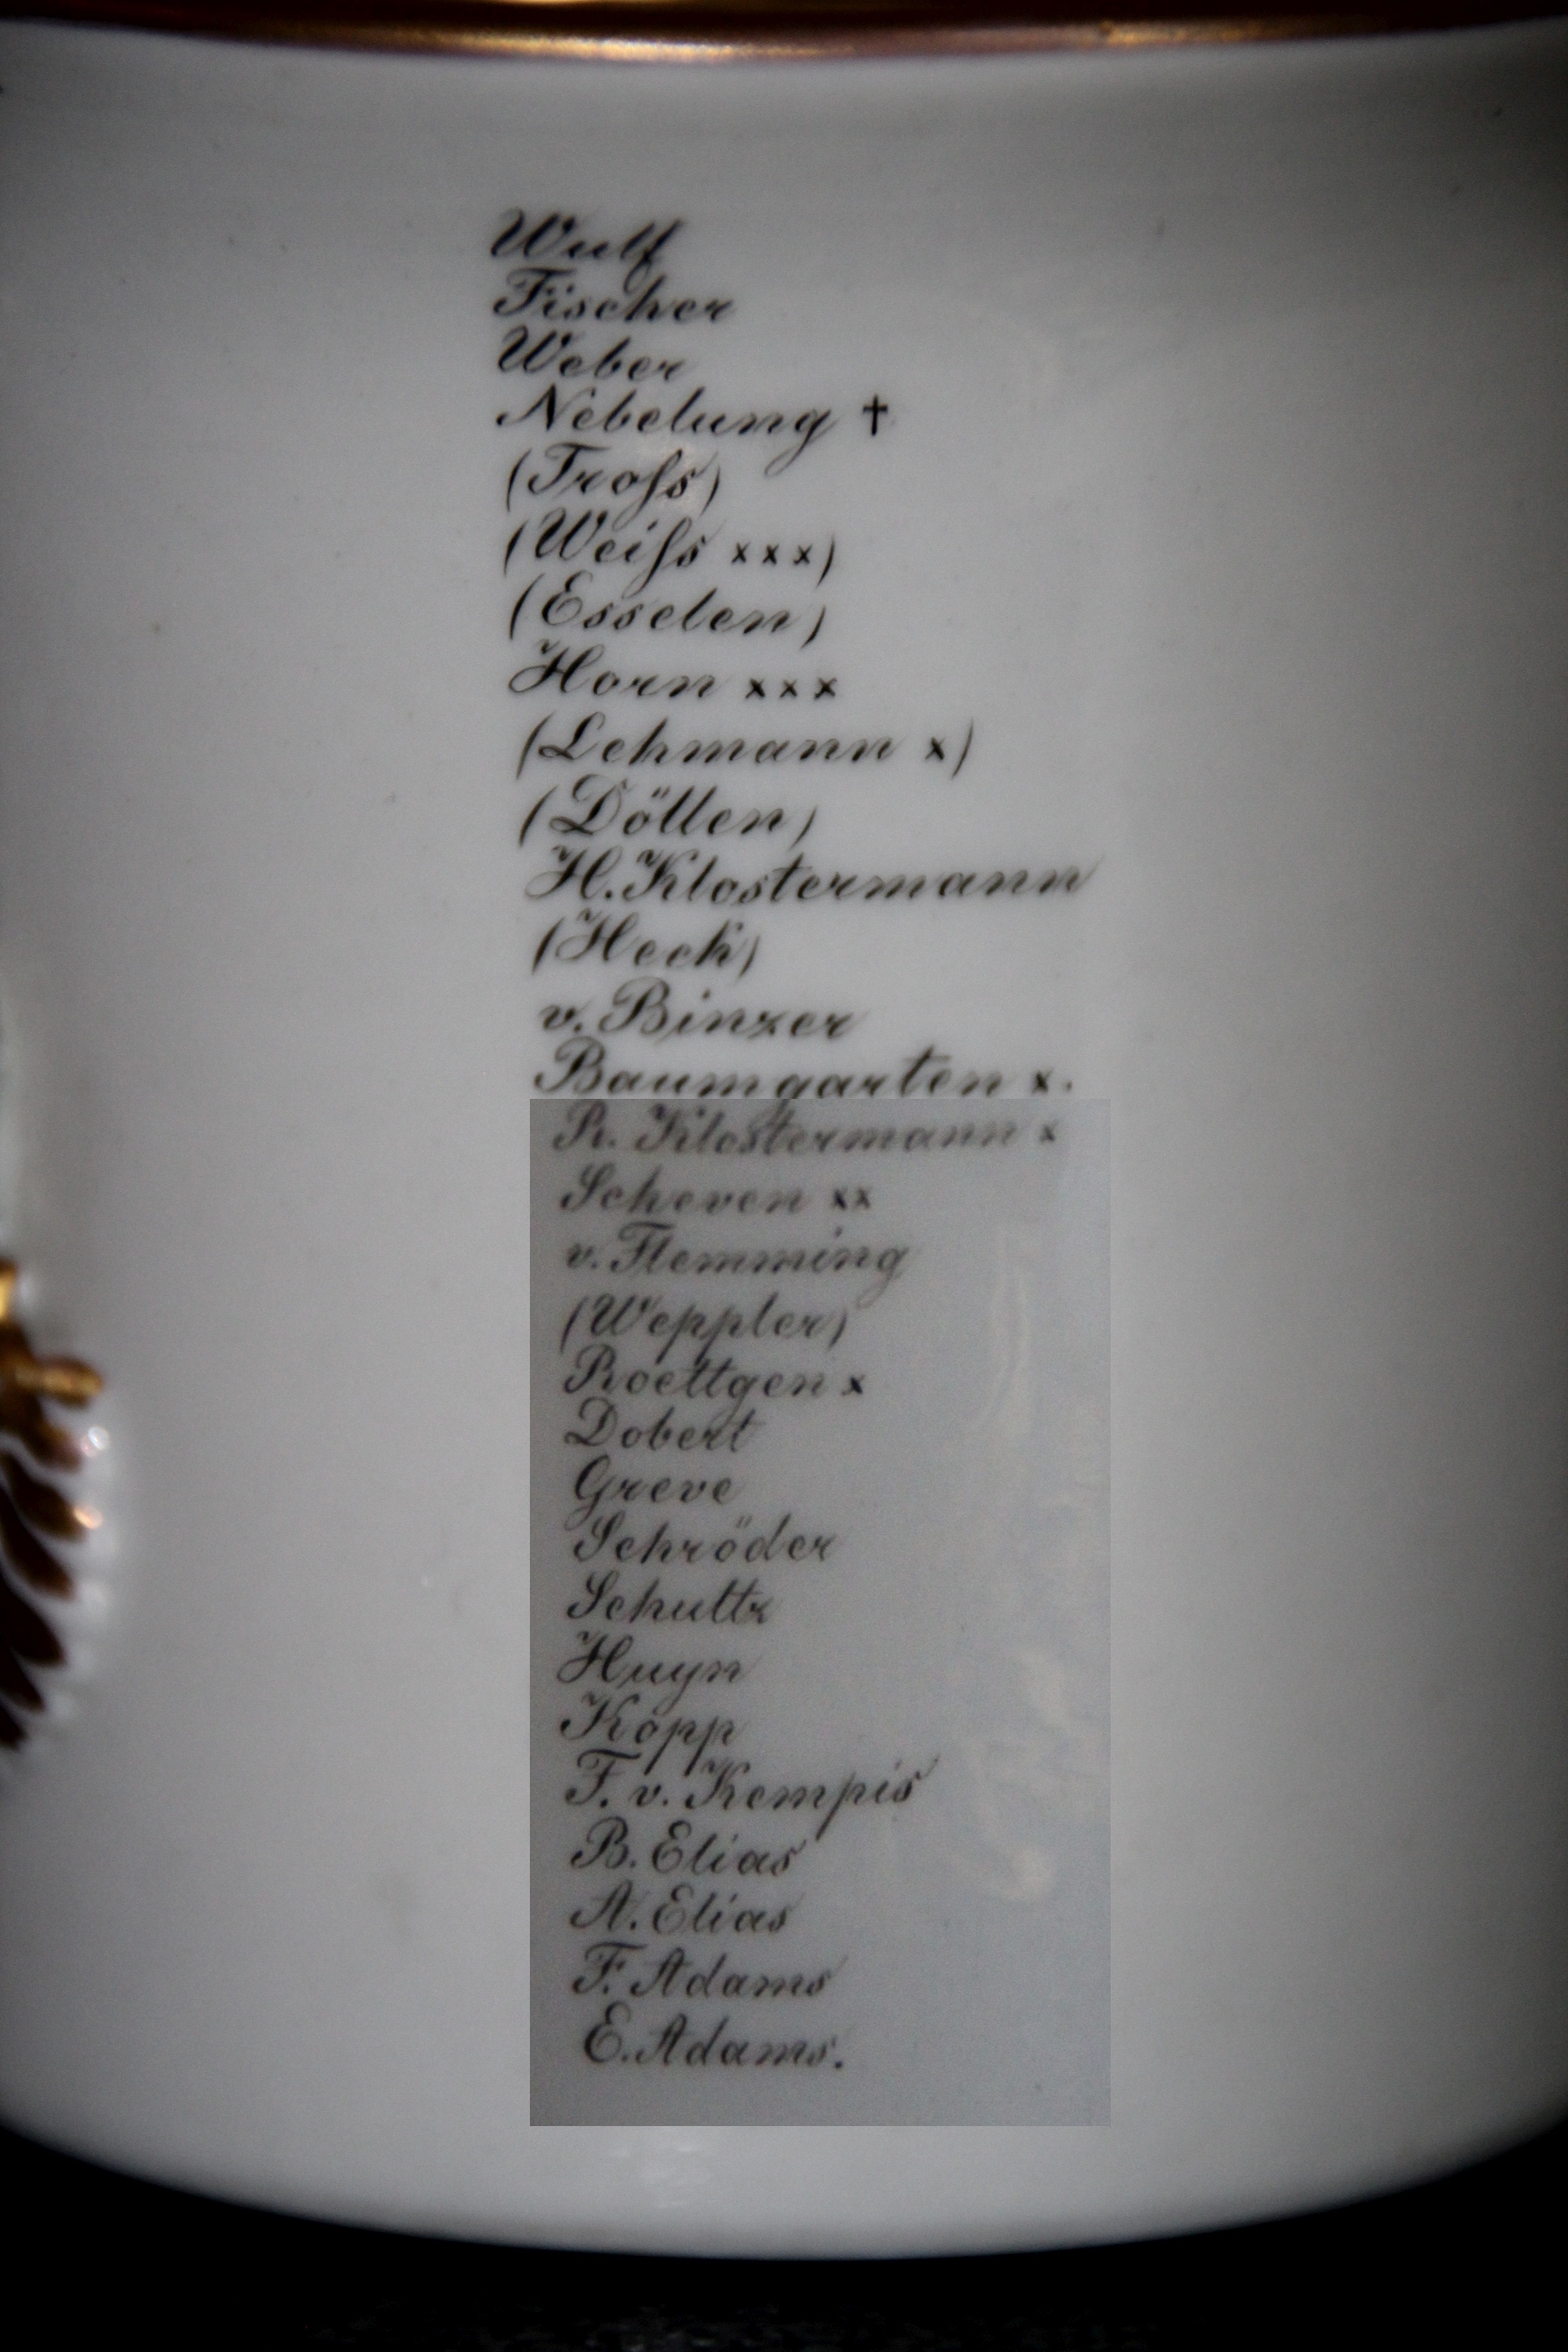 Wulf
Fischer
Weber
Nebelung †
(Troſs)
(Weiſs xxx)
(Esselen)
Horn xxx
(Lehmann x)
(Döllen)
H. Klostermann
(Heck)
v. Binzer
Baumgarten x.
R. Klostermann x
Scheven xx
v. Flemming
(Weppler)
Roettgen x
Dobert
Greve
Schröder
Schultz
Huyn
Kopp
F. v. Kempis
B. Elias
A. Elias
F. Adams
E. Adams.